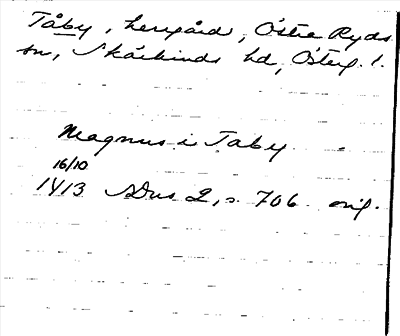 Tåby, herrgård, Östra Ryds
sn, Skärkinds hd, Österg. l.
Magnus i Taby
16/10
1413 SDns 2, s. 706 orig.